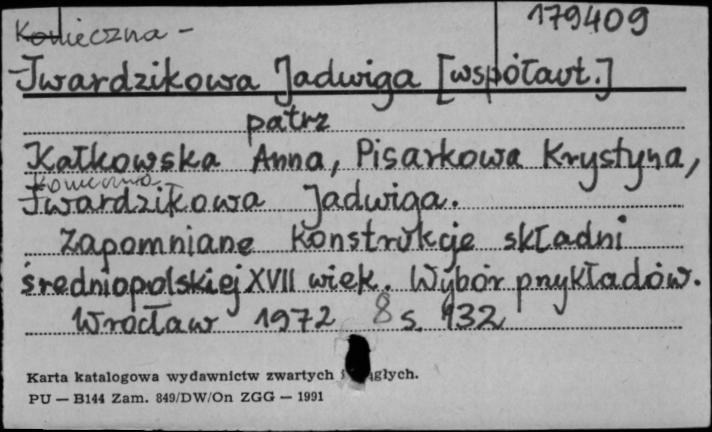 179409
Konieczna -
Twardzikowa Jadwiga [współaut.]
patrz
Kałkowska Anna, Pisarkowa Krystyna,
Konieczna-
Twardzikowa Jadwiga.
Zapomniane konstrukcje składni
średniopolskiej XVII wiek. Wybór przykładów.
Wrocław 1972 8 s. 132
Karta katalogowa wydawnictw zwartych i głych.
PU — B144 Zam. 849/DW/On ZGG — 1991